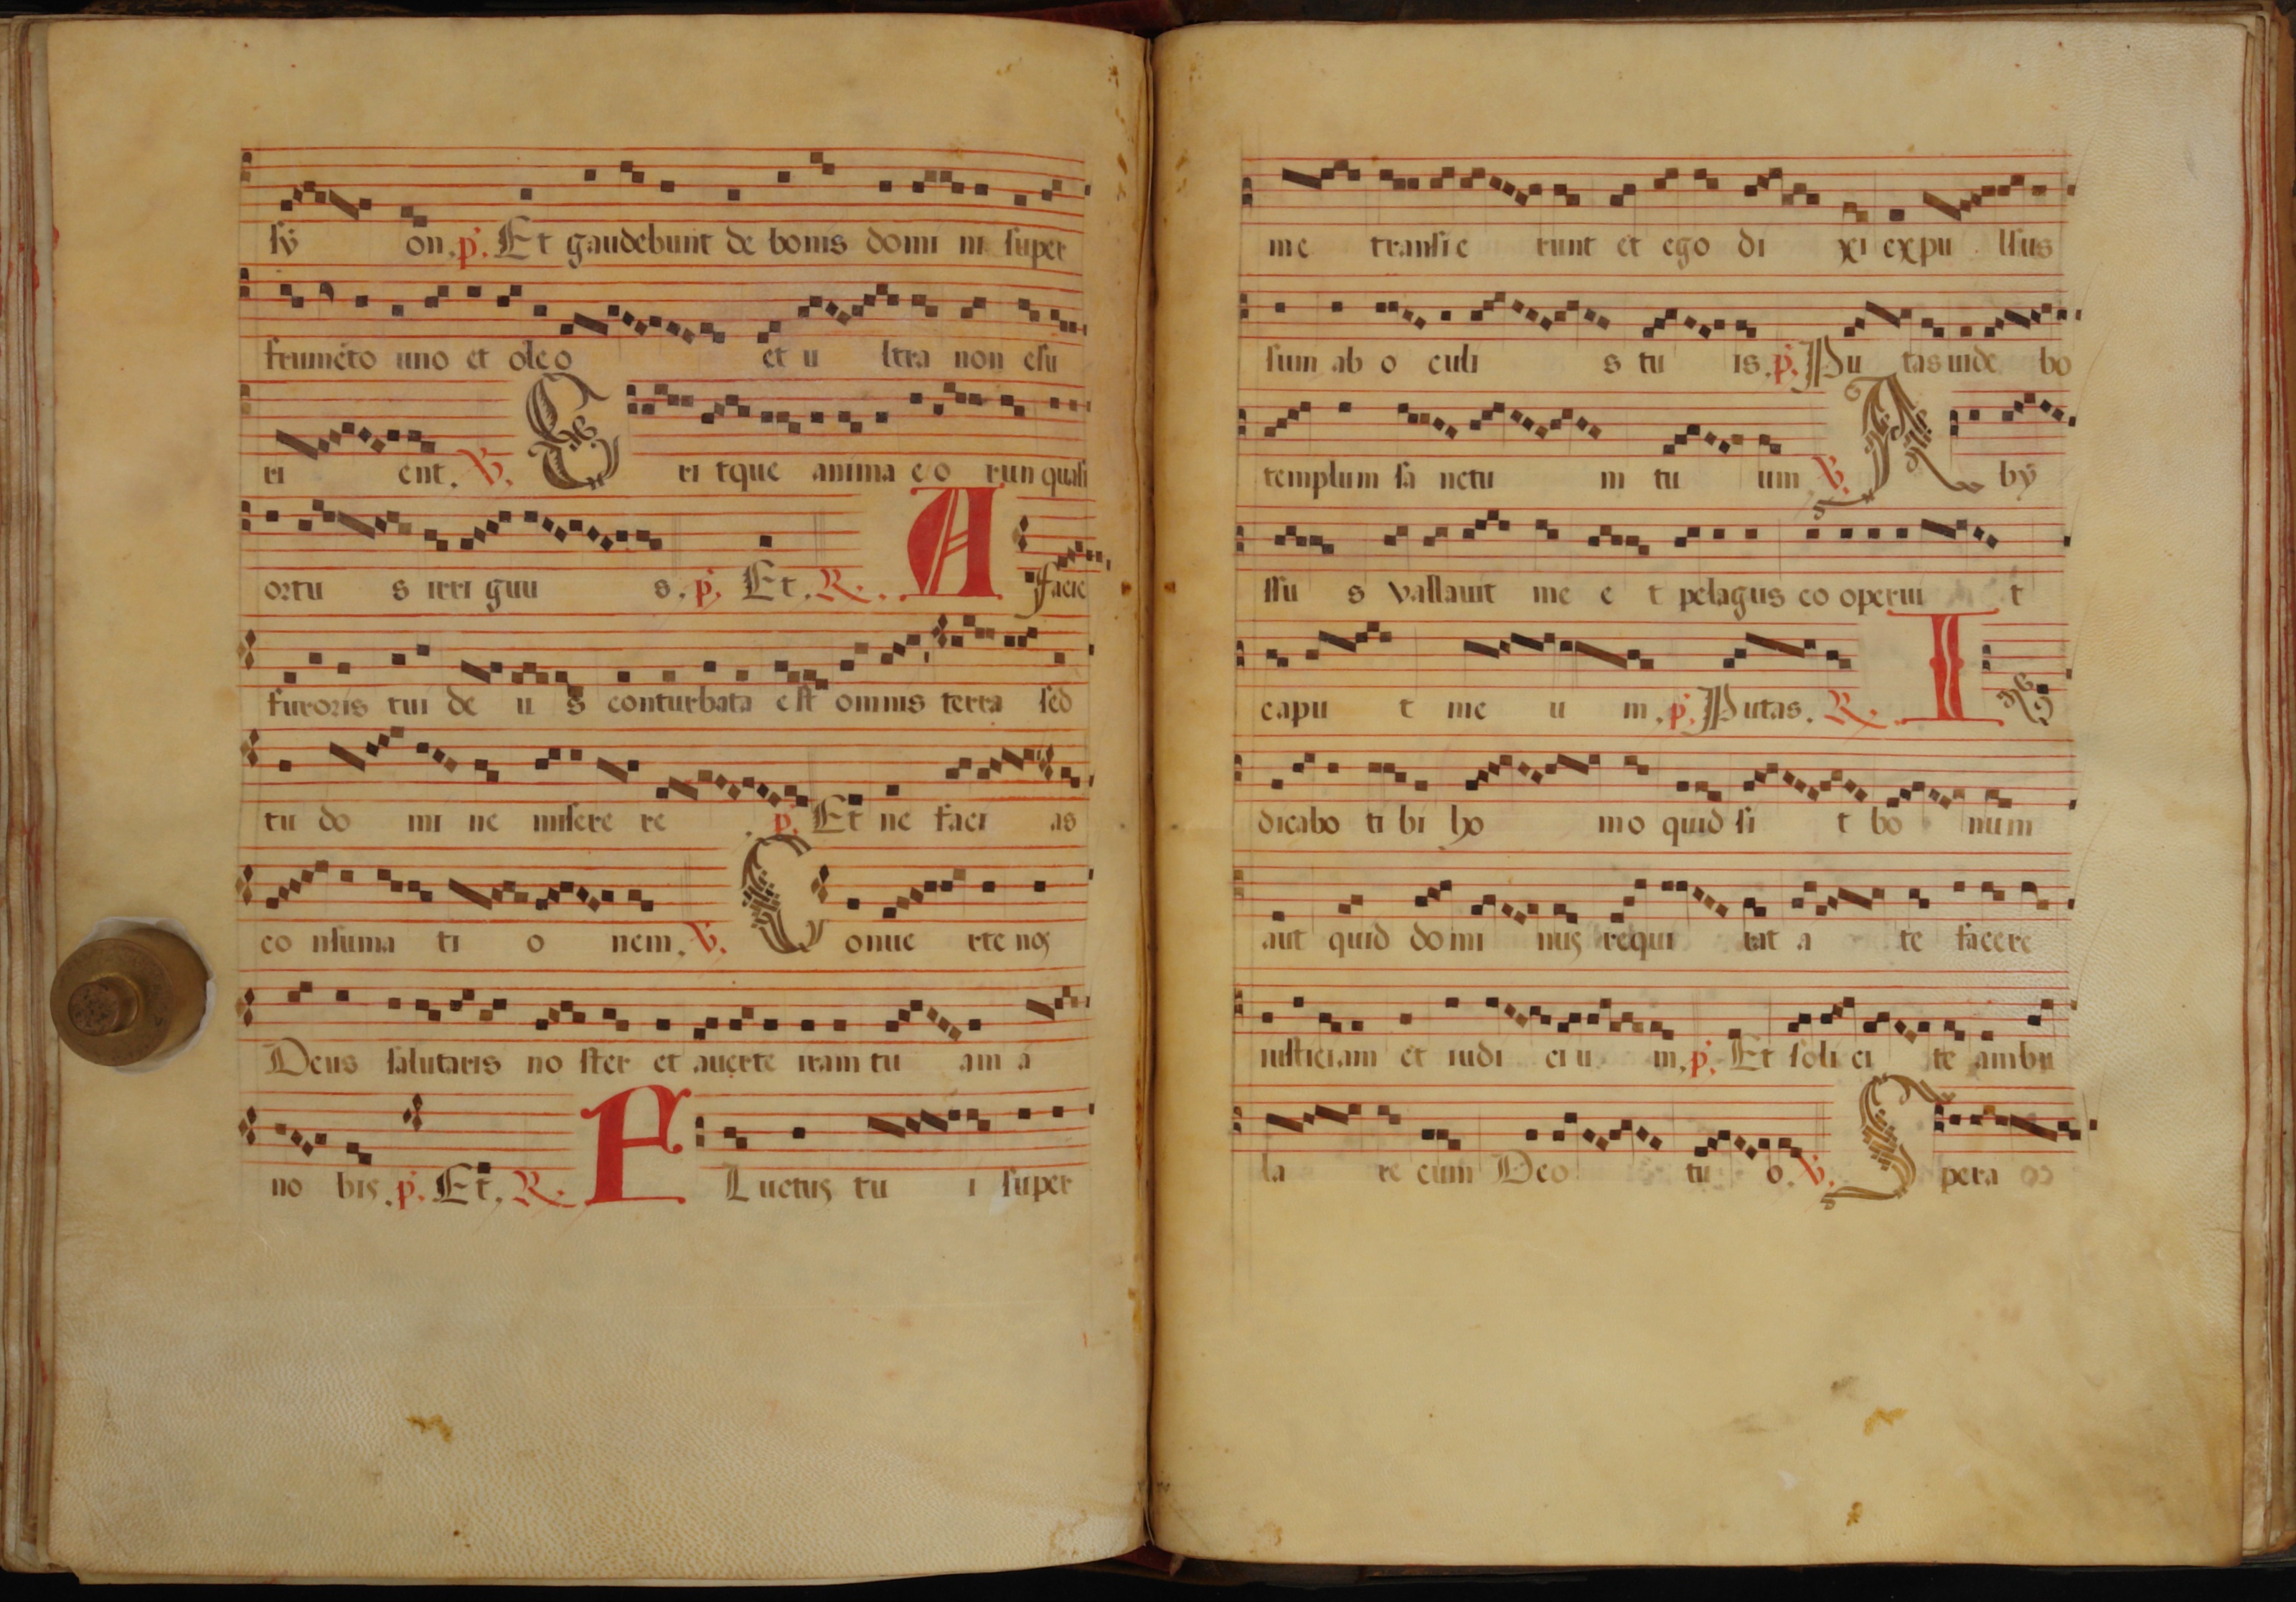 sÿ on. p. Et gaudebunt de bonis domi ni super
frumēto uno et oleo et u ltra non esu
ri ent. V. E ri tque anima eo run quasi
ortu s irri guu s. p. Et. R. A facie
furoris tui de u s conturbata est omnis terra sed
tu do mi ne misere re . p. Et ne faci as
co nsuma ti o nem. V. C onue rte nos
Deus salutaris no ster et auerte iram tu am a
no bis. p. Et. R. F Luctus tu i super
me transie runt et ego di xi expu lsus
sum ab o culi s tu is. p. Pu tas uide bo
templum sa nctu m tu um V. A bÿ
ssu s vallauit me e t pelagus co operui t
capu t me u m. p. Putas. R. I
dicabo ti bi ho mo quid si t bo num
aut quid domi nus requi rat a te facere
iusticiam et iudi ciu m. p. Et soli ci te ambu
la re cum Deo tu o. V. S pera